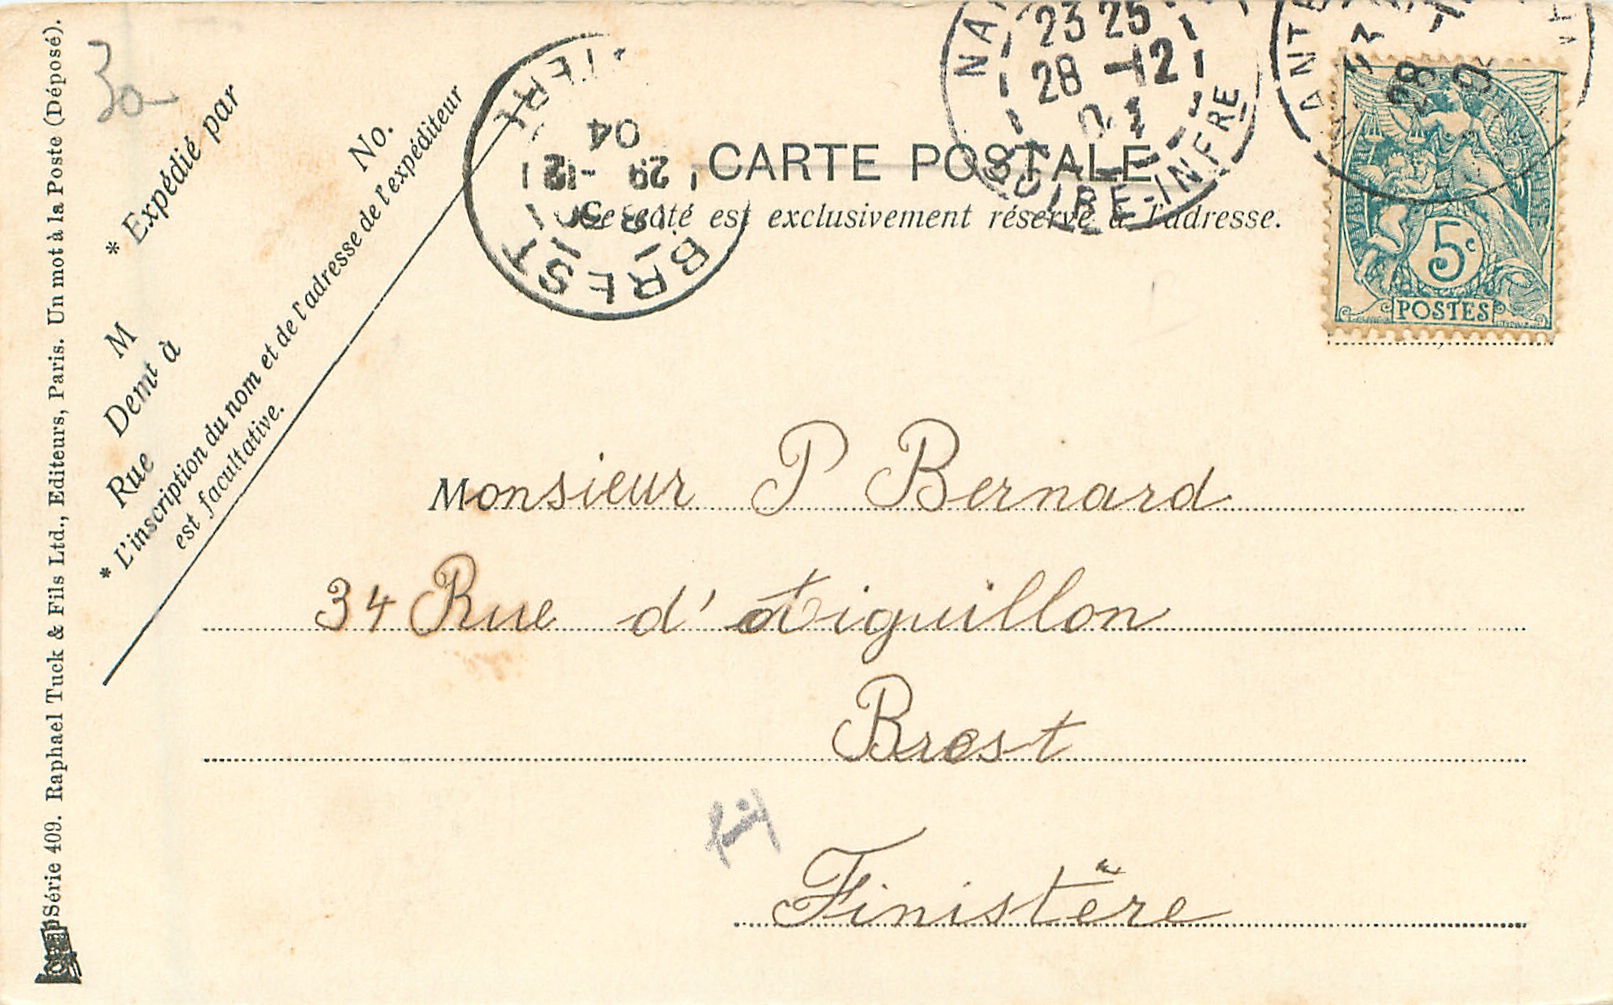 30-
* Expédié par
No.
M
Demt à
Rue
* L'inscription du nom et de l'adresse de l'expéditeur
est facultative.
Série 409. Raphael Tuck & Fils Ltd., Editeurs, Paris. Un mot à la Poste (Déposé).
BREST
29 -12
04
23 25
28 -12
LOIRE-INFRE
5c
POSTES
CARTE POSTALE
Ce côté est exclusivement réservé à l'adresse.
Monsieur P Bernard
34 Rue d'Aiguillon
Brest
Finistère